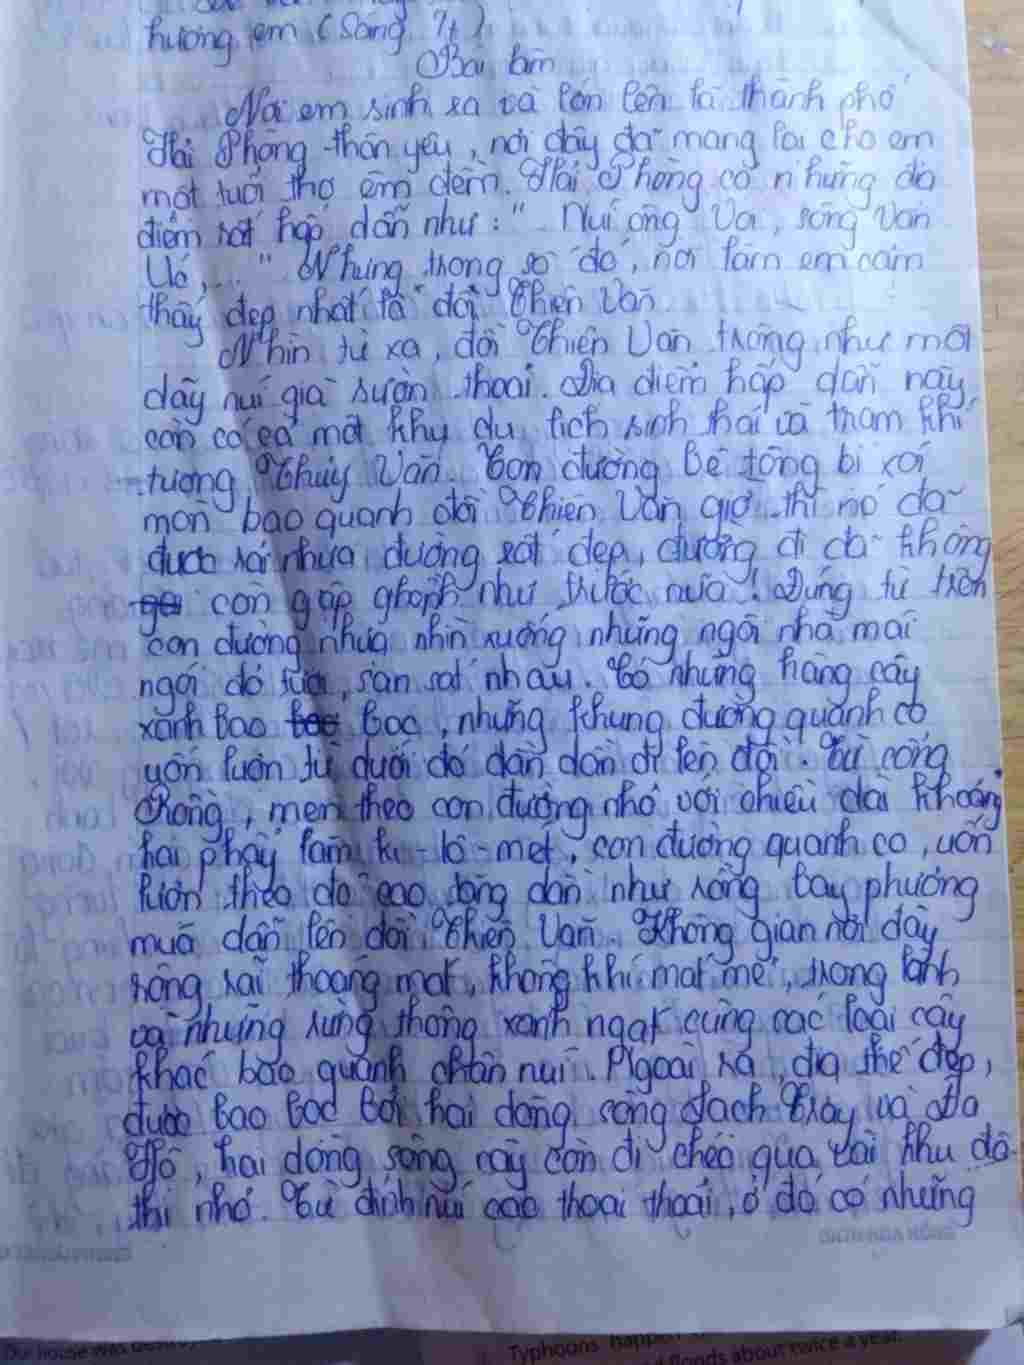 hương em (Sông, 7t)
Bài làm
Nơi em sinh ra và lớn lên là thành phố
Hải Phòng thân yêu, nơi đây đã mang lại cho em
một tuổi thơ êm đềm. Hải Phòng có những địa
điểm rất hấp dẫn như: " Núi ông Voi, sông Văn
Úc,... " Nhưng trong số đó, nơi làm em cảm
thấy đẹp nhất là đồi Thiên Văn.
Nhìn từ xa, đồi Thiên Văn trông như một
dãy núi già sườn thoai. Địa điểm hấp dẫn này
còn có cả một khu du tích sinh thái và trạm khí
tượng Thủy Văn. Con đường bê tông bị xói
mòn bao quanh đồi Thiên Văn giờ thì nó đã
được rải nhựa đường rất đẹp, đường đi đã không
còn gập ghềnh như trước nữa! Đứng từ trên
con đường nhựa nhìn xuống những ngôi nhà mái
ngói đỏ tươi, sàn sát nhau. Có những hàng cây
xanh bao bọc, những khung đường quanh co
uốn lượn từ dưới đó dần dần đi lên đồi. Từ cổng
Rồng, men theo con đường nhỏ với chiều dài khoảng
hai phẩy lăm ki-lô-mét, con đường quanh co, uốn
lượn theo độ cao tăng dần như rồng bay phượng
múa dẫn lên đồi Thiên Văn. Không gian nơi đây
rộng rãi thoáng mát, không khí mát mẻ, trong lành
và những rừng thông xanh ngắt cùng các loài cây
khác bao quanh chân núi. Ngoài ra, địa thế đẹp,
được bao bọc bởi hai dòng sông Lạch Tray và Đa
Độ, hai dòng sông này còn đi chéo qua vài khu đô
thị nhỏ. Từ đỉnh núi cao thoai thoải, ở đó có những
Our house was
Typhoons happen
floods about twice a year.